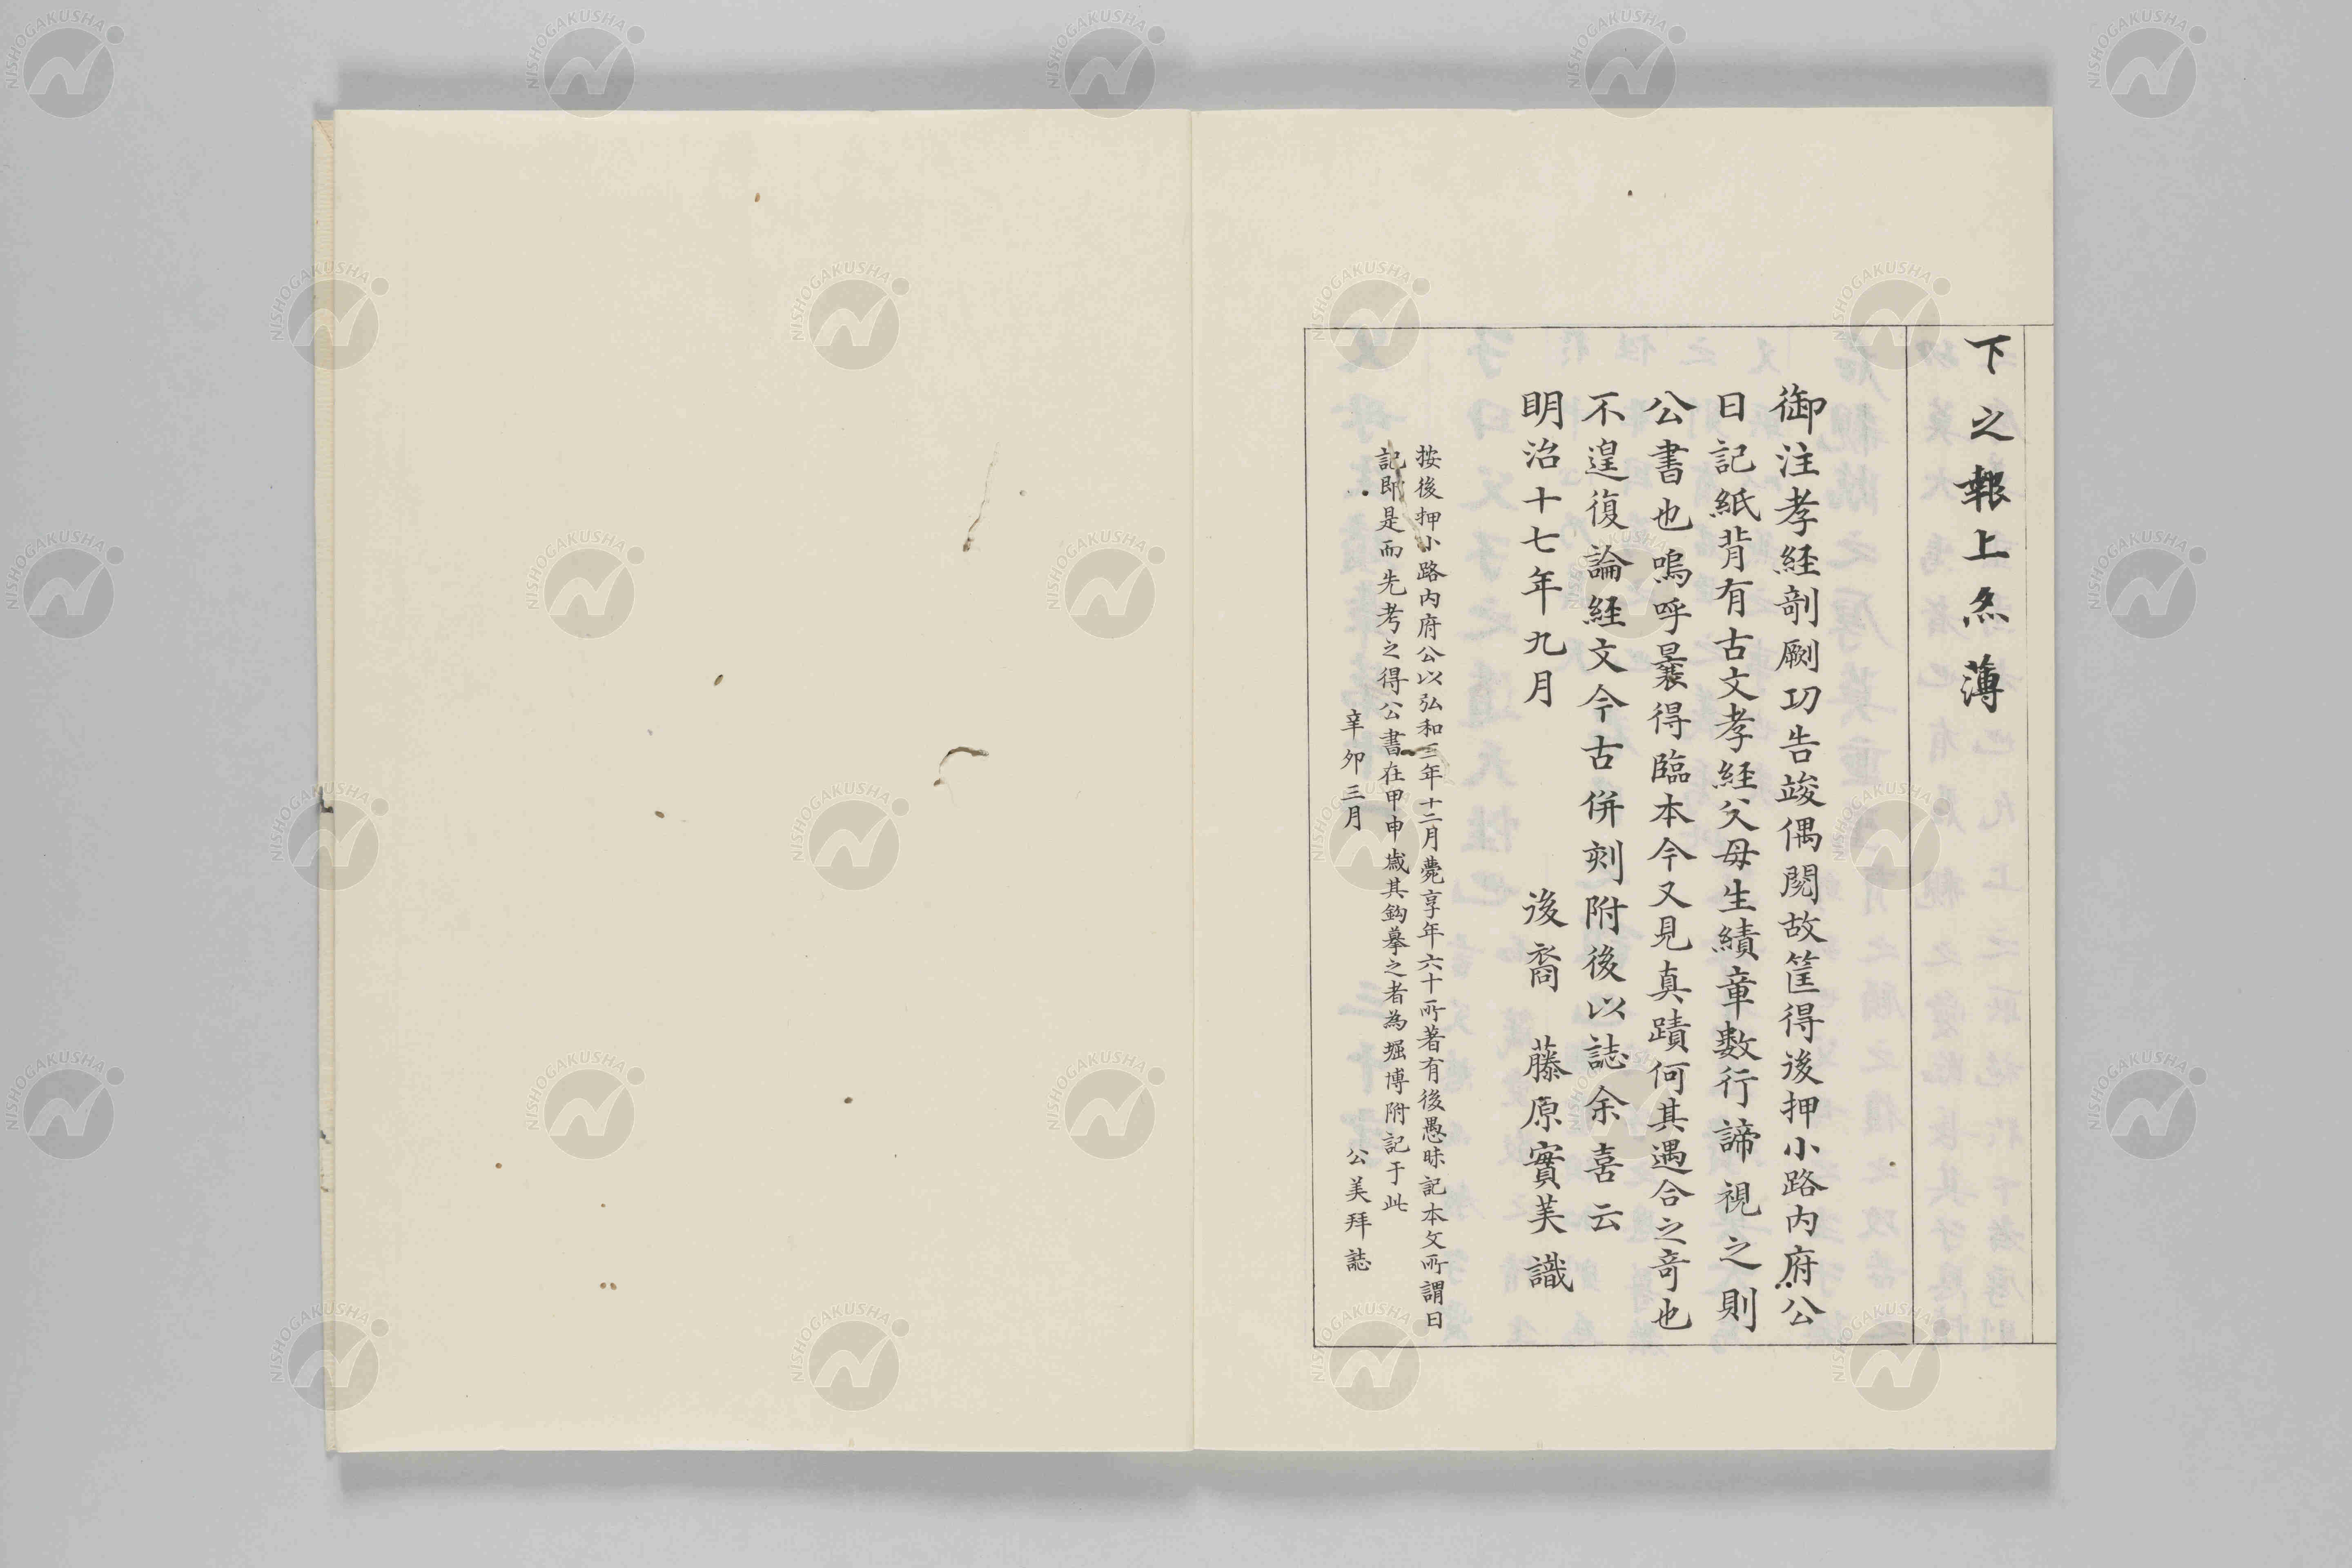 下之報上𤍠薄
御注孝経剞劂功告竣偶閲故筐得後押小路内府公
日記紙背有古文孝経父母生績章數行諦視之則
公書也嗚呼曩得臨本今又見真蹟何其遇合之竒也
不遑復論経文今古併刻附後以誌余喜云
明治十七年九月 後裔 藤原實美識
按後押小路内府公以弘和三年十二月薨享年六十所著有後愚昧記本文所謂日
記即是而先考之得公書在甲申歳其鈎摹之者為堀博附記于此
辛卯三月 公美拜誌
NISHOGAKUSHA